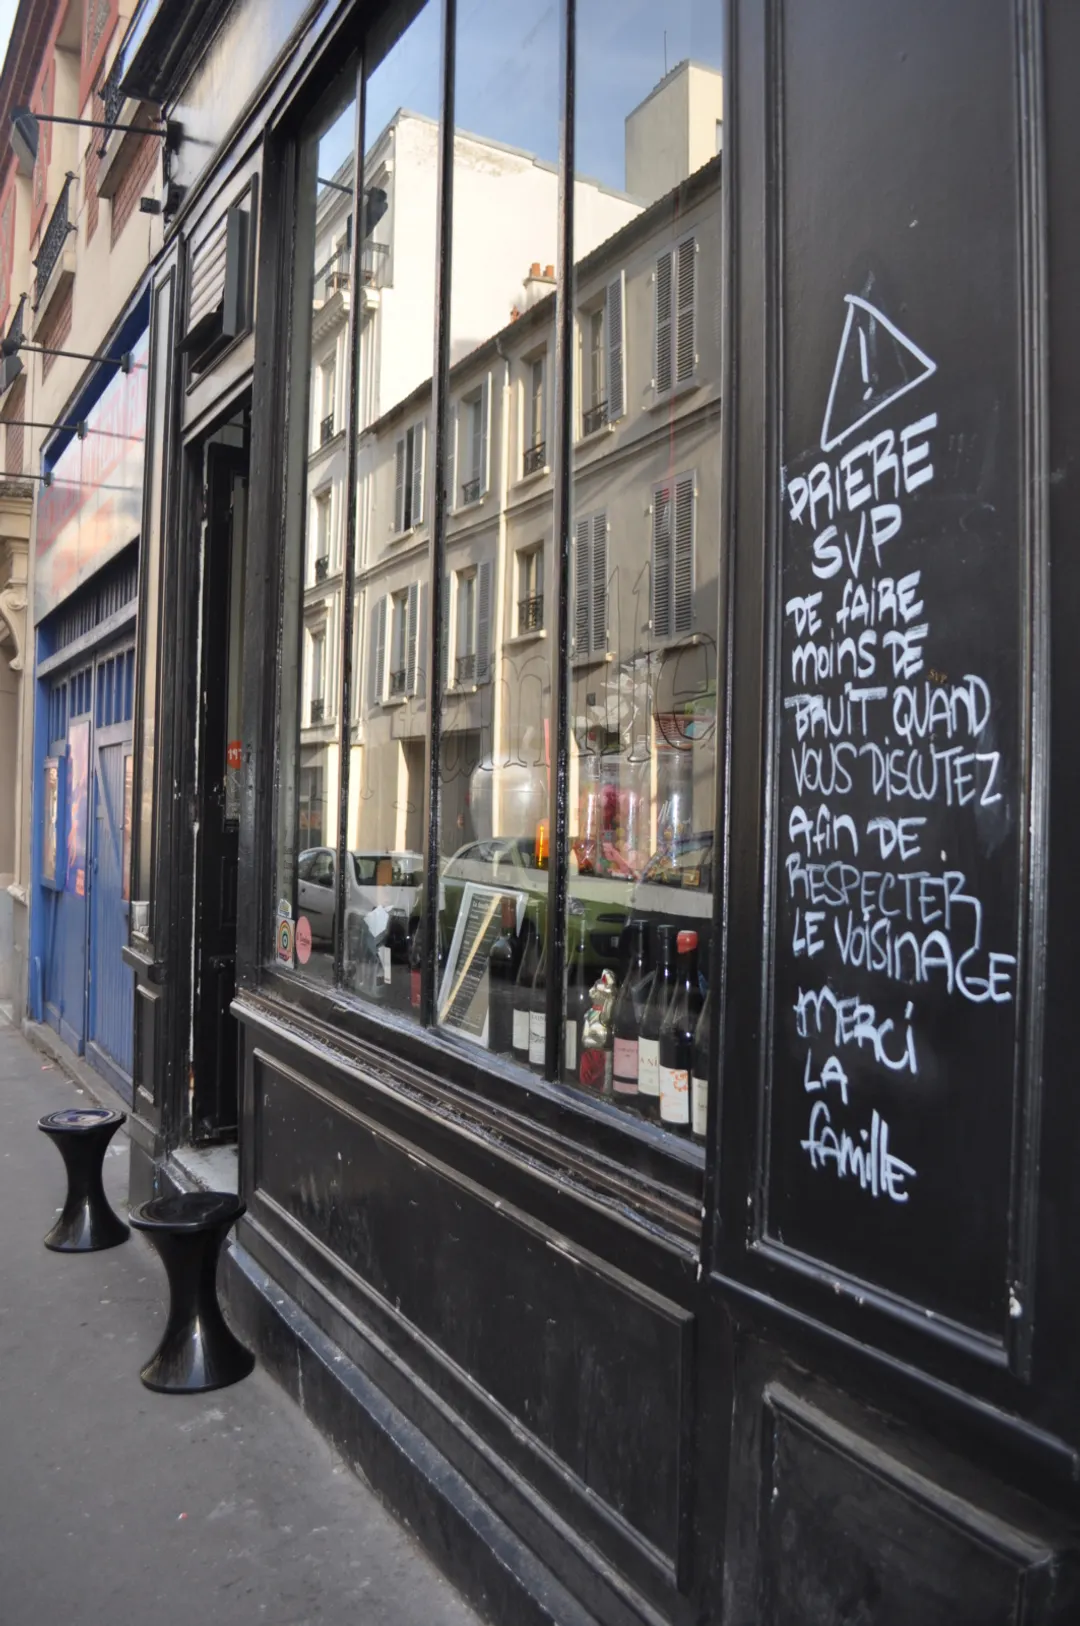 !
PRIERE
SVP
DE fAiRE
moins DE
BRUiT QUAND
VOUS DISCUTEZ
Afin DE
RESPECTER
LE VOiSiNAGE
MERCi
LA
fAmille
la famille